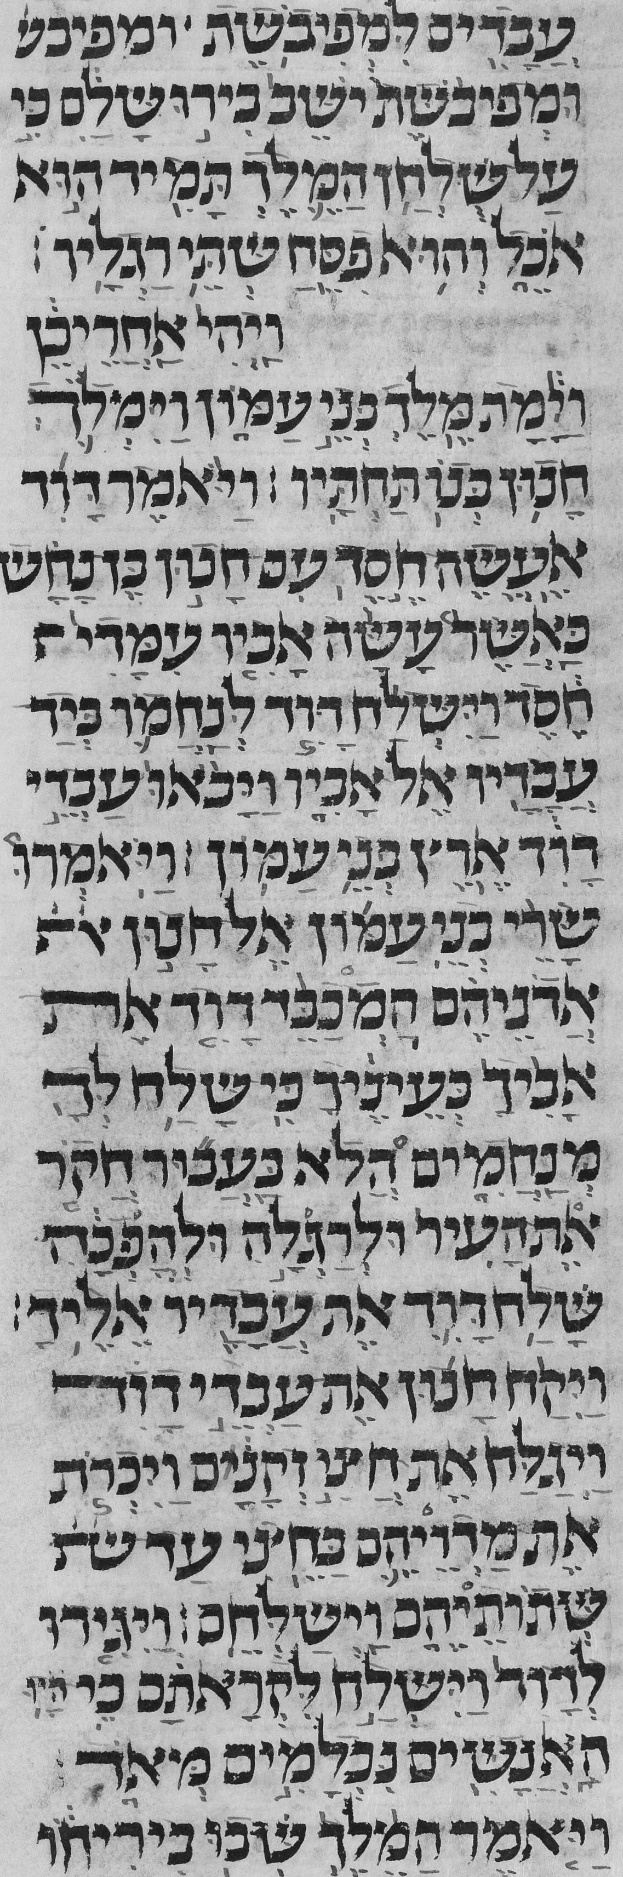 עבדים למפיבשת ׃ ומפיבש
ומפיבשת ישב בירושלם כי
על שלחן המלך תמיד הוא
אכל והוא פסח שתי רגליו ׃
ויהי אחריכן
וימת מלך בני עמון וימלך
חנון בנו תחתיו ׃ ויאמר דוד
אעשה חסד עם חנון בן נחש
כאשר עשה אביו עמדי ח
חסד וישלח דוד לנחמו ביד
עבדיו אל אביו ויבאו עבדי
דוד ארץ בני עמון ׃ ויאמרו
שרי בני עמון אל חנון את
אדניהם המכבד דוד את
אביך בעיניך כי שלח לך
מנחמים הלא בעבור חקר
את העיר ולרגלה ולהפכה
שלח דוד את עבדיו אליך ׃
ויקח חנון את עבדי דוד
ויגלח את חצי זקנם ויכרת
את מדויהם בחצי עד שת
שתותיהם וישלחם ׃ ויגידו
לדוד וישלח לקראתם כי היו
האנשים נכלמים מאד
ויאמר המלך שבו ביריחו